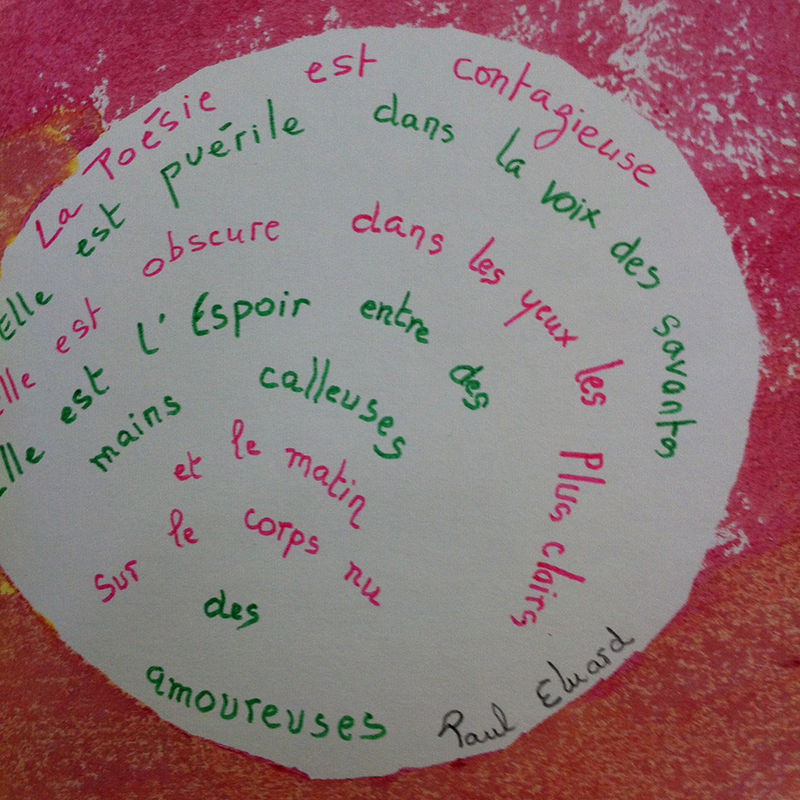 La Poésie est contagieuse
Elle est puérile dans la voix des savants
Elle est obscure dans les yeux les Plus clairs
Elle est l'Espoir entre des
mains calleuses
et le matin
Sur le corps nu
des
amoureuses
Paul Eluard